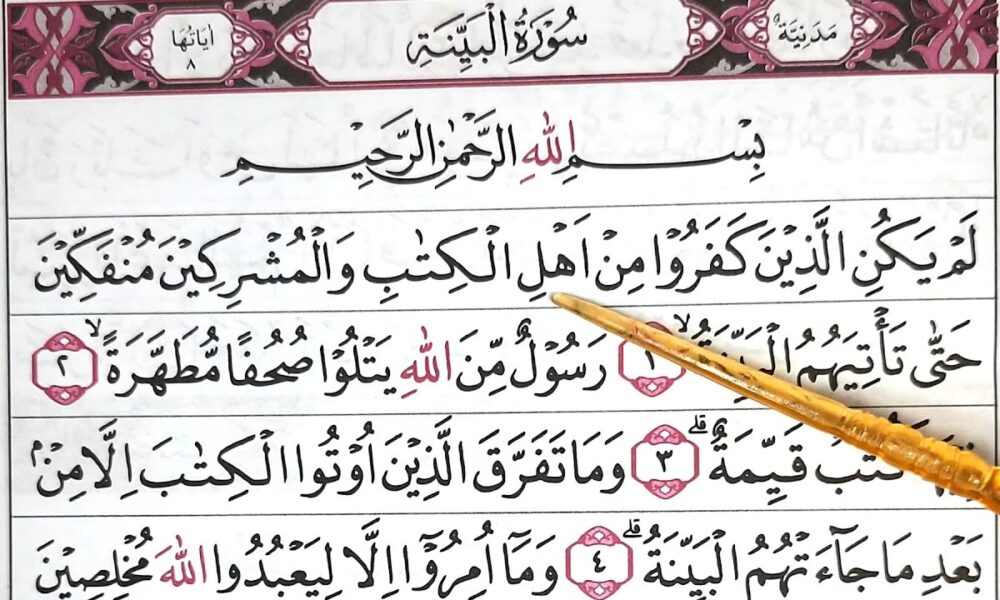 مَدَنِيَّةٌ
سُوْرَةُ الْبَيِّنَةِ
اٰيَاتُهَا ٨
بِسْمِ اللهِ الرَّحْمٰنِ الرَّحِيْمِ
لَمْ يَكُنِ الَّذِيْنَ كَفَرُوْا مِنْ اَهْلِ الْكِتٰبِ وَالْمُشْرِكِيْنَ مُنْفَكِّيْنَ
حَتّٰى تَأْتِيَهُمُ الْبَيِّنَةُۙ ١ رَسُوْلٌ مِّنَ اللهِ يَتْلُوْا صُحُفًا مُّطَهَّرَةًۙ ٢
كُتُبٌ قَيِّمَةٌۗ ٣ وَمَا تَفَرَّقَ الَّذِيْنَ اُوْتُوا الْكِتٰبَ اِلَّا مِنْۢ
بَعْدِ مَا جَآءَتْهُمُ الْبَيِّنَةُۗ ٤ وَمَآ اُمِرُوْٓا اِلَّا لِيَعْبُدُوا اللهَ مُخْلِصِيْنَ